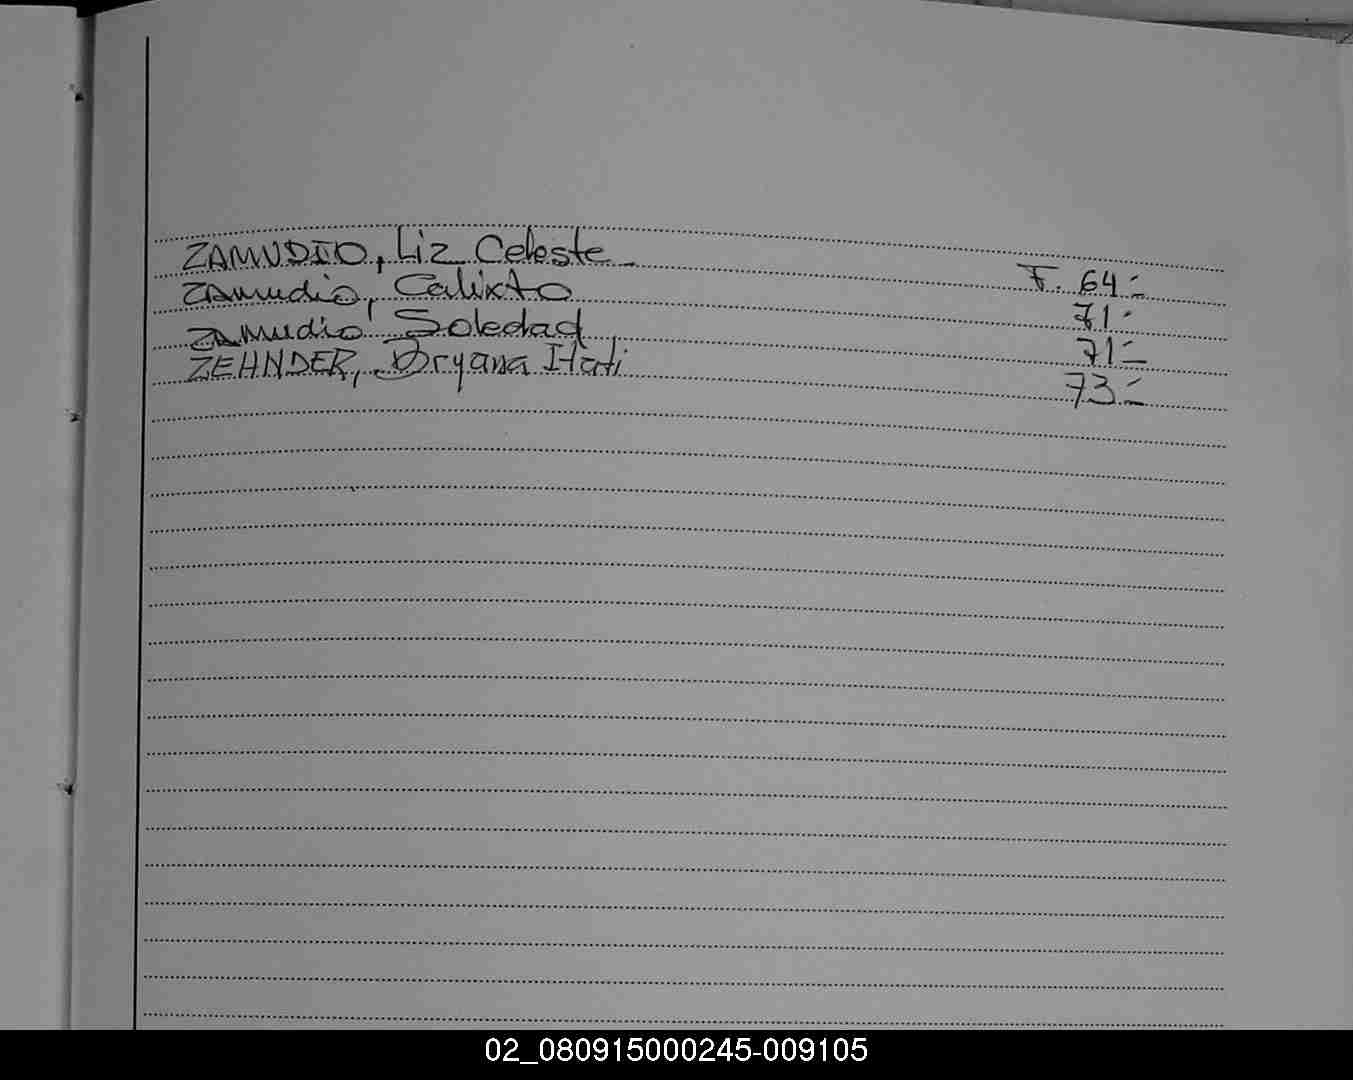 ZAMUDIO, Liz Celeste - F. 64=
Zamudio, Calixto 71=
Zamudio, Soledad 71=
ZEHNDER, Bryana Itati 73=
02_080915000245-009105